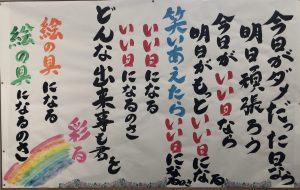 今日がダメだった日なら
明日頑張ろう
今日がいい日なら
明日がもっといい日になる
笑いあえたらいい日になるのさ
いい日になる
いい日になるのさ
どんな出来事も君を
彩る
絵の具になる
絵の具になるのさ